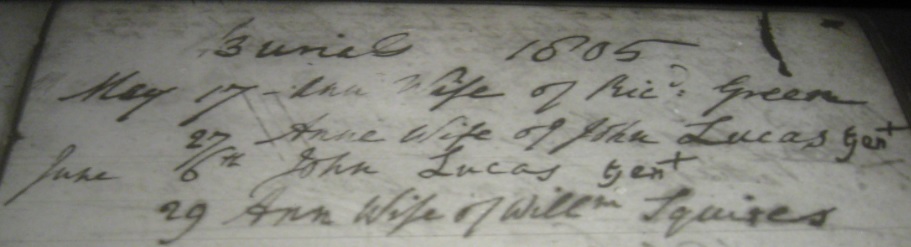 Burials 1805
May 17 - Ann Wife of Ricd: Green
27 Anne Wife of John Lucas Gent
June 6th John Lucas Gent
29 Ann Wife of Willm Squires